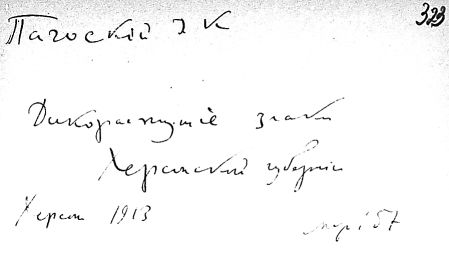 323
Пачоскій І К
Дикорастущіе злаки
Херсонской губерніи
Херсон 1913